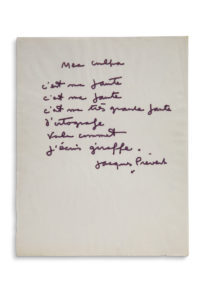 Mea culpa
c'est ma faute
c'est ma faute
c'est ma très grande faute
d'ortografe
voila comment
j'écris giraffe.
Jacques Prévert